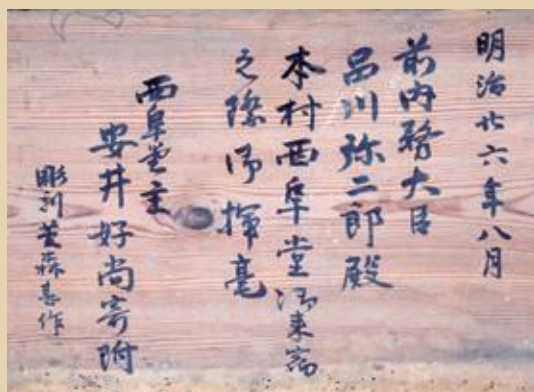 明治廿六年八月
前内務大臣
品川弥二郎殿
本村西阜堂御来寓
之際御揮毫
西阜堂主
安井好尚寄附
彫刻 森 作